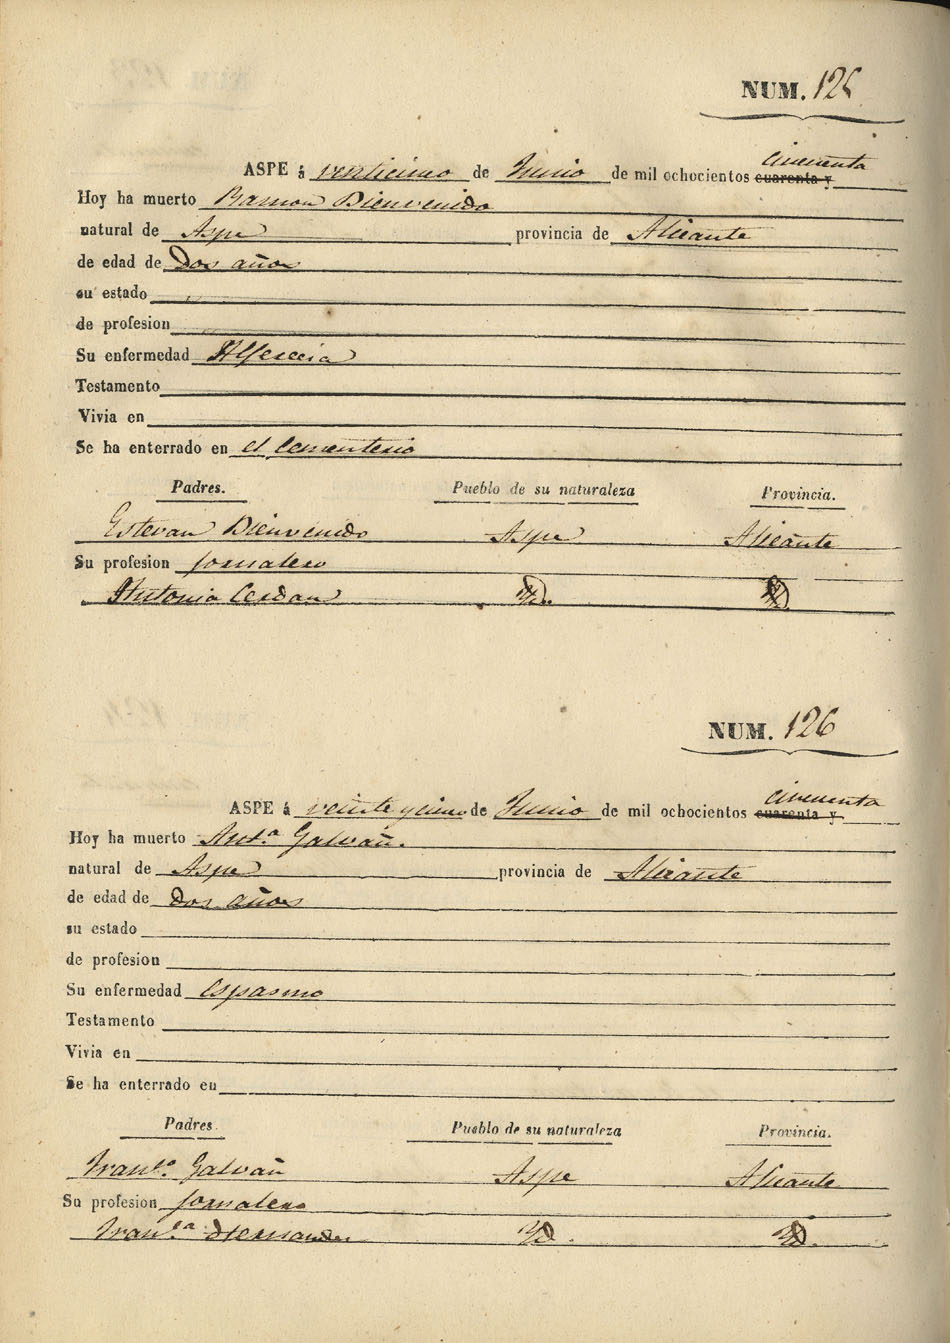 NUM. 125
cincuenta
ASPE á venticinco de Junio de mil ochocientos cuarenta y
Hoy ha muerto Ramon Bienvenido
natural de Aspe provincia de Alicante
de edad de Dos años
su estado
de profesion
Su enfermedad Alferecia
Testamento
Vivia en
Se ha enterrado en el Cementerio
Padres. Pueblo de su naturaleza Provincia.
Estevan Bienvenido Aspe Alicante
Su profesion Jornalero
Antonia Cerdan Yd. Yd.
NUM. 126
cincuenta
ASPE á veinte y cinco de Junio de mil ochocientos cuarenta y
Hoy ha muerto Ant.ª Galvañ.
natural de Aspe provincia de Alicante
de edad de Dos años
su estado
de profesion
Su enfermedad espasmo
Testamento
Vivia en
Se ha enterrado en
Padres. Pueblo de su naturaleza Provincia.
Fran.co Galvañ Aspe Alicante
Su profesion Jornalero
Fran.ca Hernandez Yd. Yd.